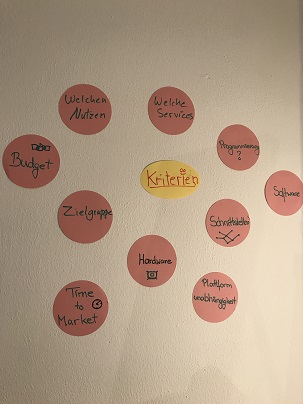 Welchen
Nutzen
Welche
Services
Programmierung
?
Budget
Kriterien
Software
Zielgruppe
Schnittstellen
Hardware
Time
to
Market
Plattform
unabhängigkeit